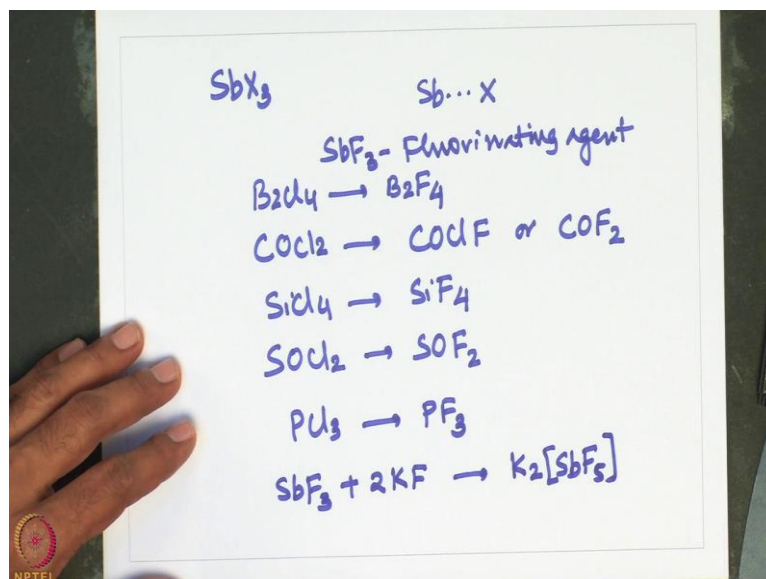 SbX₃ Sb...X
SbF₃ - Fluorinating agent
B₂Cl₄ → B₂F₄
COCl₂ → COClF or COF₂
SiCl₄ → SiF₄
SOCl₂ → SOF₂
PCl₃ → PF₃
SbF₃ + 2KF → K₂[SbF₅]
NPTEL